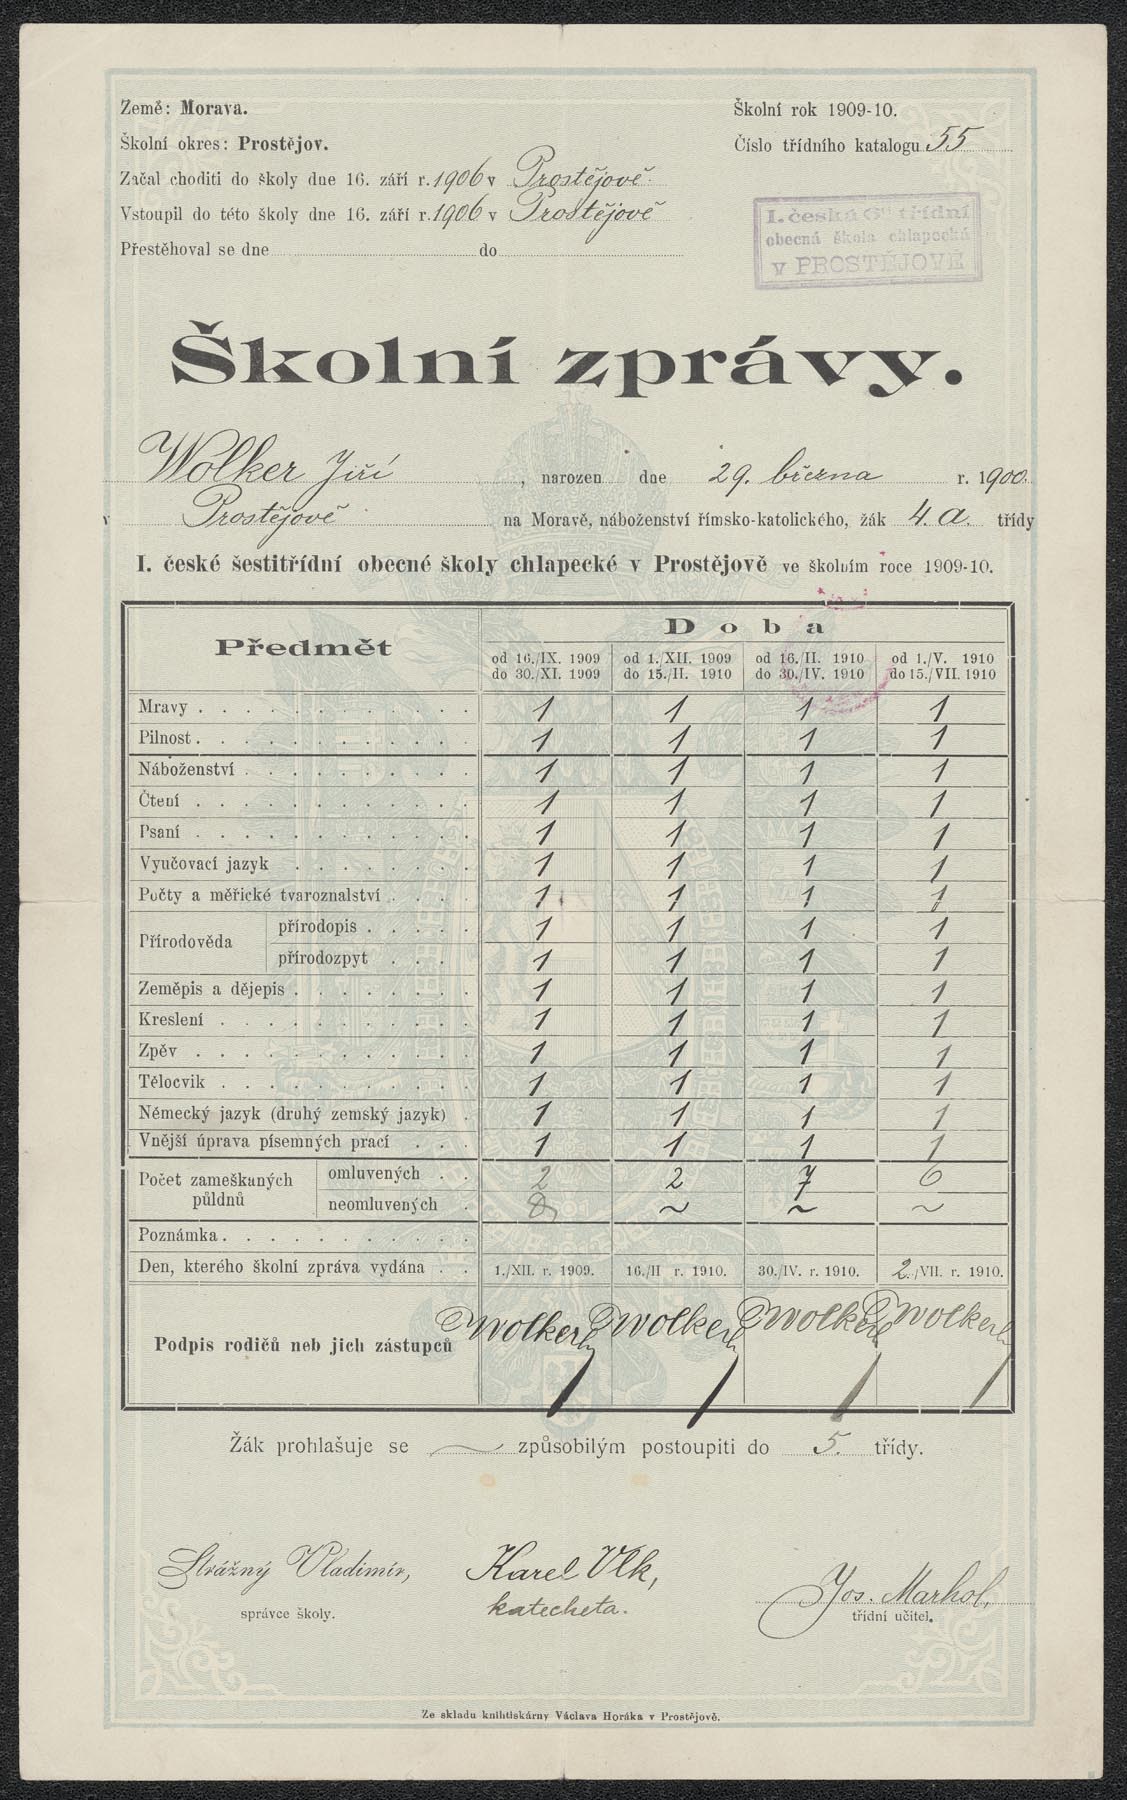 Země: Morava.
Školní rok 1909-10.
Školní okres: Prostějov.
Číslo třídního katalogu 55
Začal choditi do školy dne 16. září r. 1906 v Prostějově
Vstoupil do této školy dne 16. září r. 1906 v Prostějově
Přestěhoval se dne do
I. česká 6ti třídní
obecná škola chlapecká
v PROSTĚJOVĚ
Školní zprávy.
Wolker Jiří, narozen dne 29. března r. 1900.
v Prostějově na Moravě, náboženství římsko-katolického, žák 4. a. třídy
I. české šestitřídní obecné školy chlapecké v Prostějově ve školním roce 1909-10.
Předmět Doba
od 16./IX. 1909 do 30./XI. 1909 od 1./XII. 1909 do 15./II. 1910 od 16./II. 1910 do 30./IV. 1910 od 1./V. 1910 do 15./VII. 1910
Mravy 1 1 1 1
Pilnost 1 1 1 1
Náboženství 1 1 1 1
Čtení 1 1 1 1
Psaní 1 1 1 1
Vyučovací jazyk 1 1 1 1
Počty a měřické tvaroznalství 1 1 1 1
Přírodověda přírodopis 1 1 1 1
přírodozpyt 1 1 1 1
Zeměpis a dějepis 1 1 1 1
Kreslení 1 1 1 1
Zpěv 1 1 1 1
Tělocvik 1 1 1 1
Německý jazyk (druhý zemský jazyk) 1 1 1 1
Vnější úprava písemných prací 1 1 1 1
Počet zameškaných půldnů omluvených 2 2 7 6
neomluvených ~ ~ ~
Poznámka
Den, kterého školní zpráva vydána 1./XII. r. 1909. 16./II r. 1910. 30./IV. r. 1910. 2./VII. r. 1910.
Podpis rodičů neb jich zástupců Wolker Wolker Wolker Wolker
Žák prohlašuje se ~ způsobilým postoupiti do 5. třídy.
Strážný Vladimír,
správce školy.
Karel Vlk,
katecheta.
Jos. Marhol,
třídní učitel.
Ze skladu knihtiskárny Václava Horáka v Prostějově.